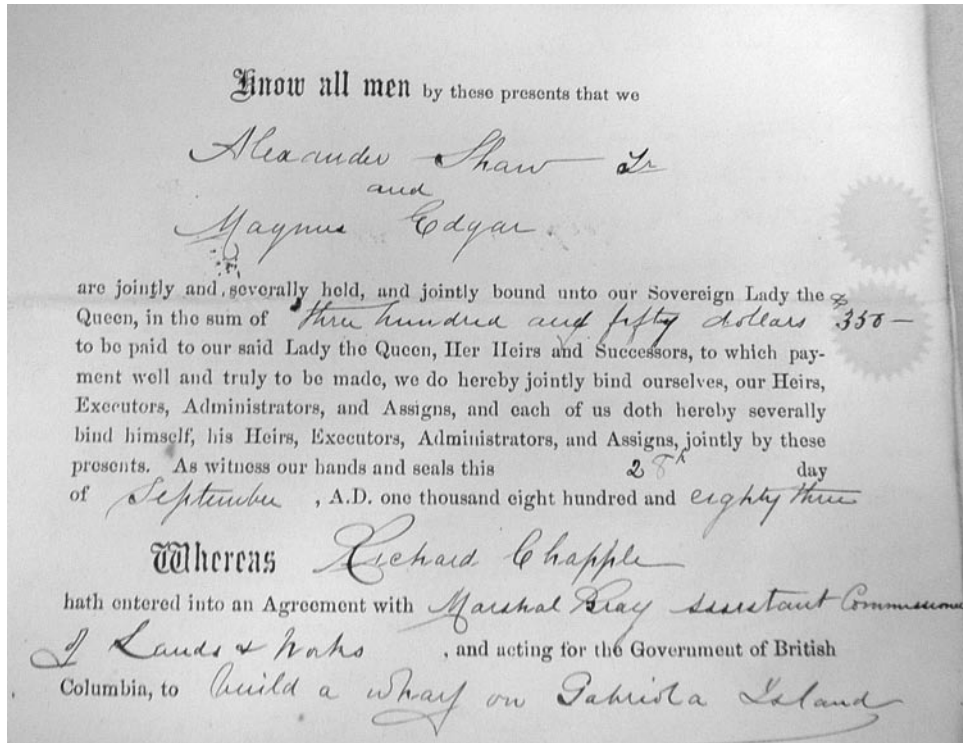 Know all men by these presents that we
Alexander Shaw Jr
and
Magnus Edgar.
are jointly and severally held, and jointly bound unto our Sovereign Lady the
Queen, in the sum of three hundred and fifty dollars $350—
to be paid to our said Lady the Queen, Her Heirs and Successors, to which pay-
ment well and truly to be made, we do hereby jointly bind ourselves, our Heirs,
Executors, Administrators, and Assigns, and each of us doth hereby severally
bind himself, his Heirs, Executors, Administrators, and Assigns, jointly by these
presents. As witness our hands and seals this 28th day
of September, A.D. one thousand eight hundred and eighty three
Whereas Richard Chapple
hath entered into an Agreement with Marshal Bray Assistant Commissioner
of Lands & Works, and acting for the Government of British
Columbia, to build a wharf on Gabriola Island